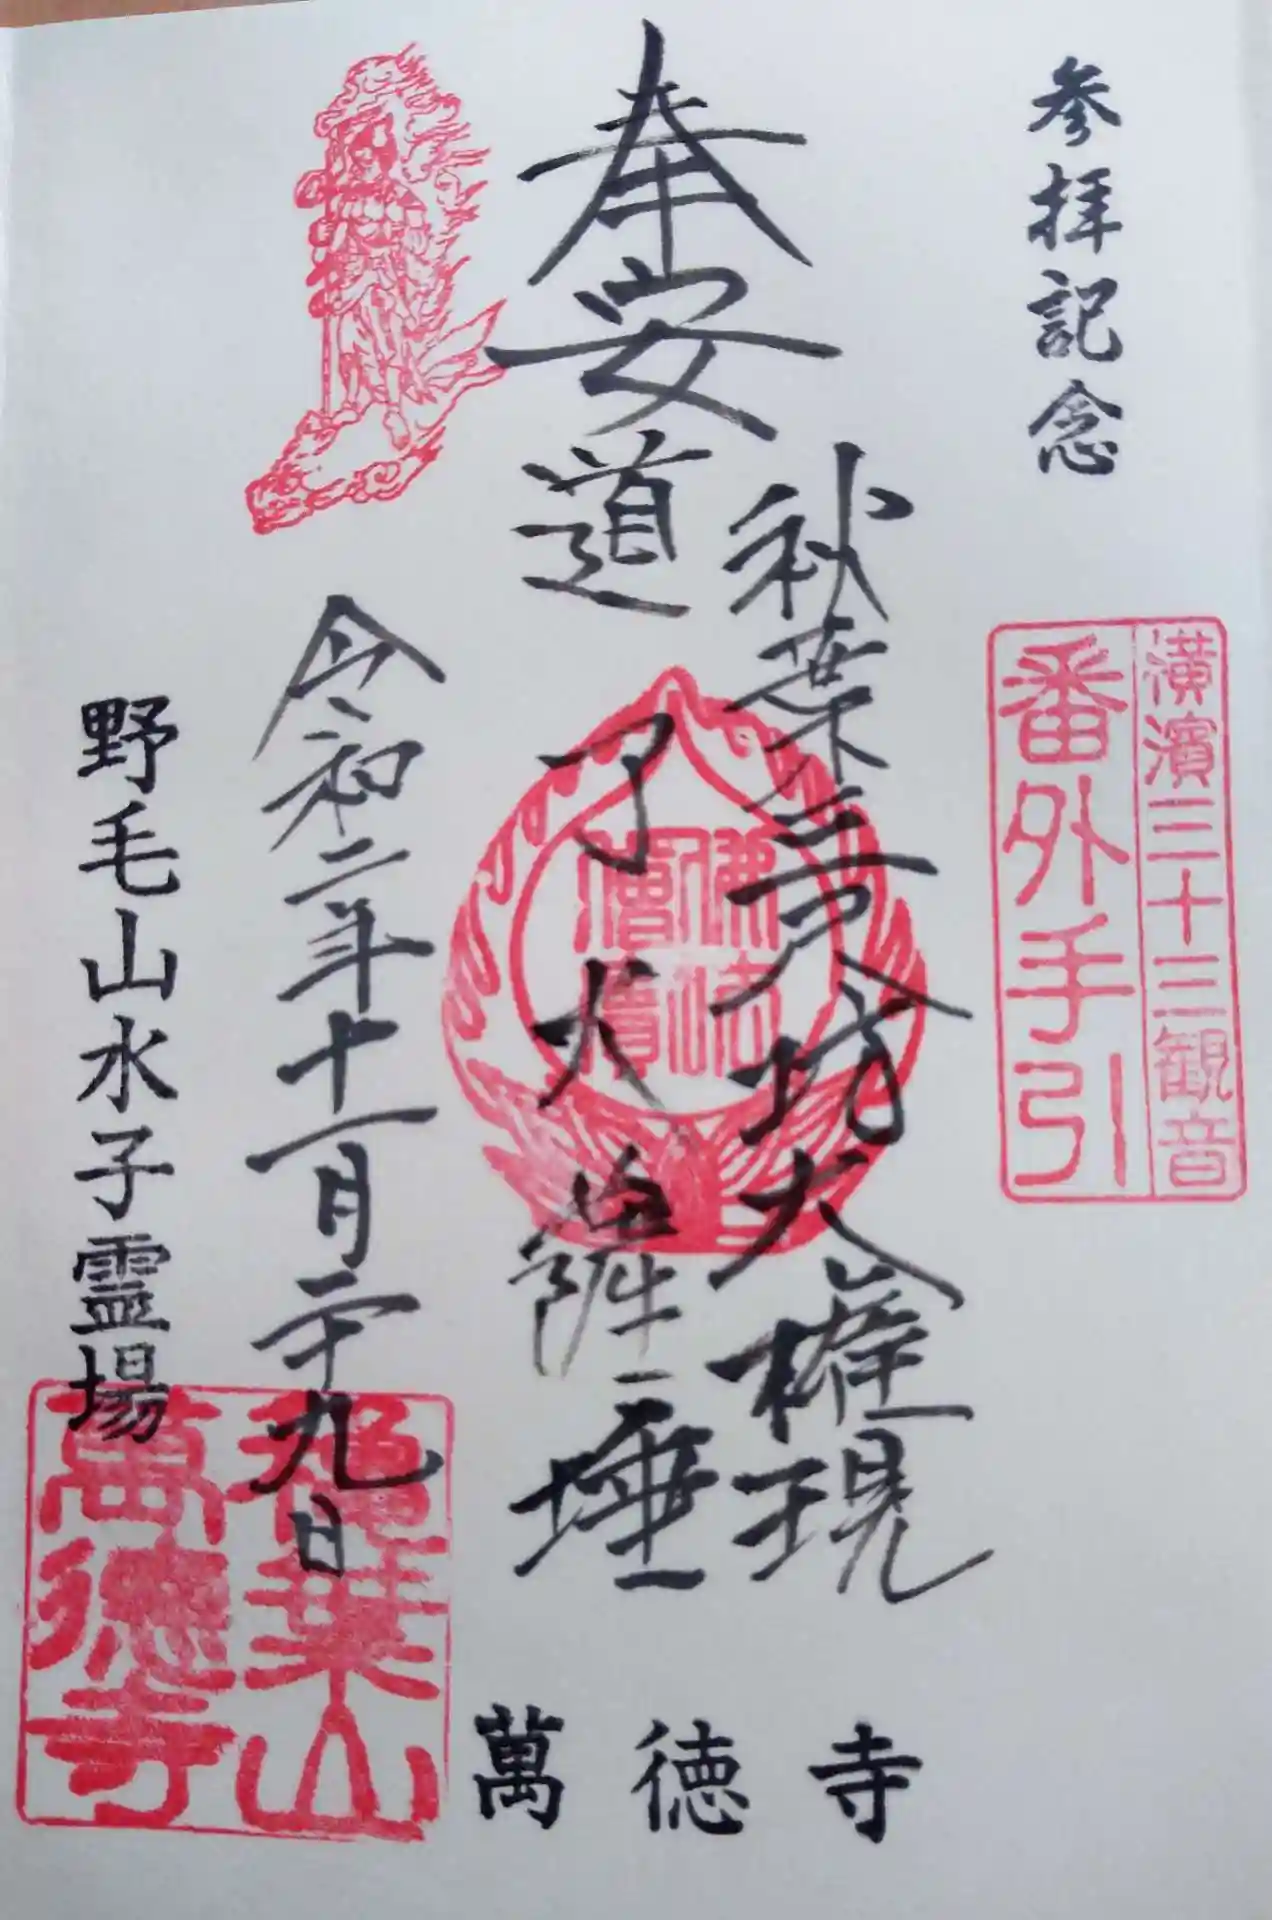 参拝記念
横濱三十三観音
番外手引
奉安
秋葉三尺坊大権現
道了大薩埵
佛法
僧寶
令和二年十一月二十九日
野毛山水子霊場
葉山
萬德寺
萬徳寺